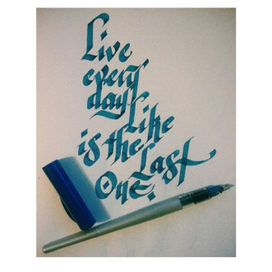 Live
every
day Like
is the Last
One.